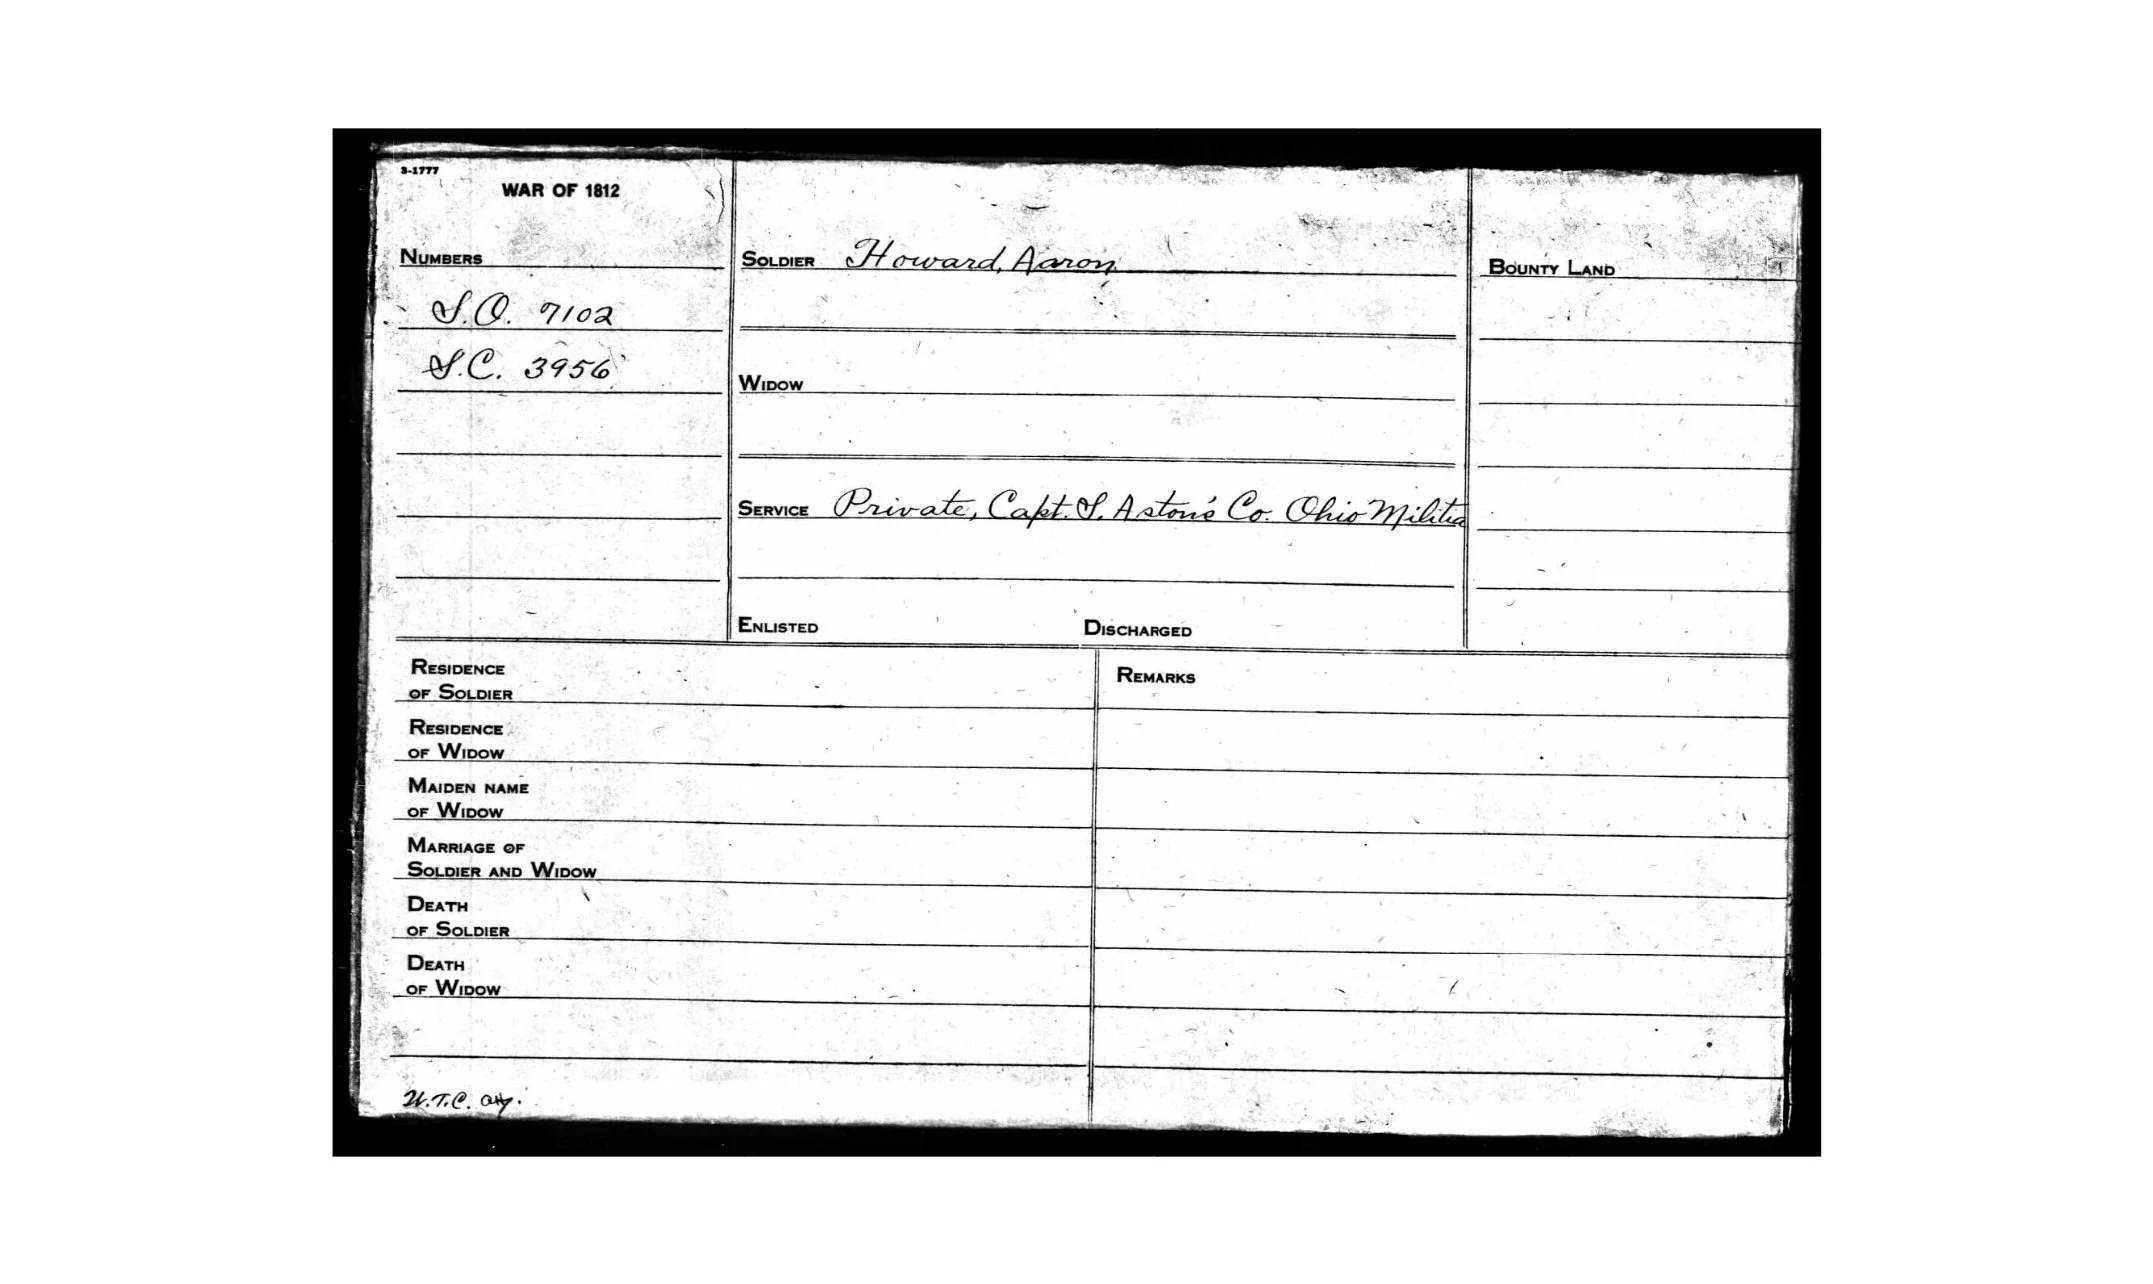 3-1777
WAR OF 1812
NUMBERS
S.O. 7102
S.C. 3956
SOLDIER Howard, Aaron
WIDOW
SERVICE Private, Capt. S. Aston's Co. Ohio Militia
ENLISTED DISCHARGED
BOUNTY LAND
RESIDENCE
OF SOLDIER
RESIDENCE
OF WIDOW
MAIDEN NAME
OF WIDOW
MARRIAGE OF
SOLDIER AND WIDOW
DEATH
OF SOLDIER
DEATH
OF WIDOW
REMARKS